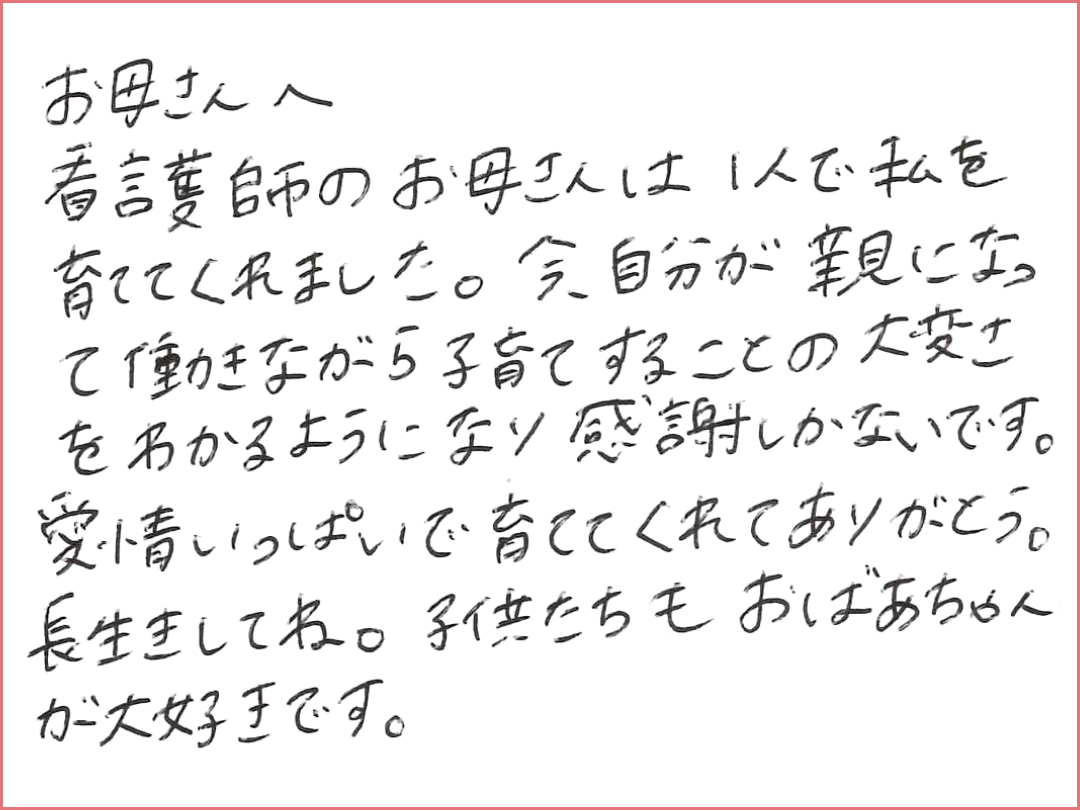 お母さんへ
看護師のお母さんは1人で私を
育ててくれました。今、自分が親になっ
て働きながら子育てすることの大変さ
をわかるようになり感謝しかないです。
愛情いっぱいで育ててくれてありがとう。
長生きしてね。子供たちもおばあちゃん
が大好きです。